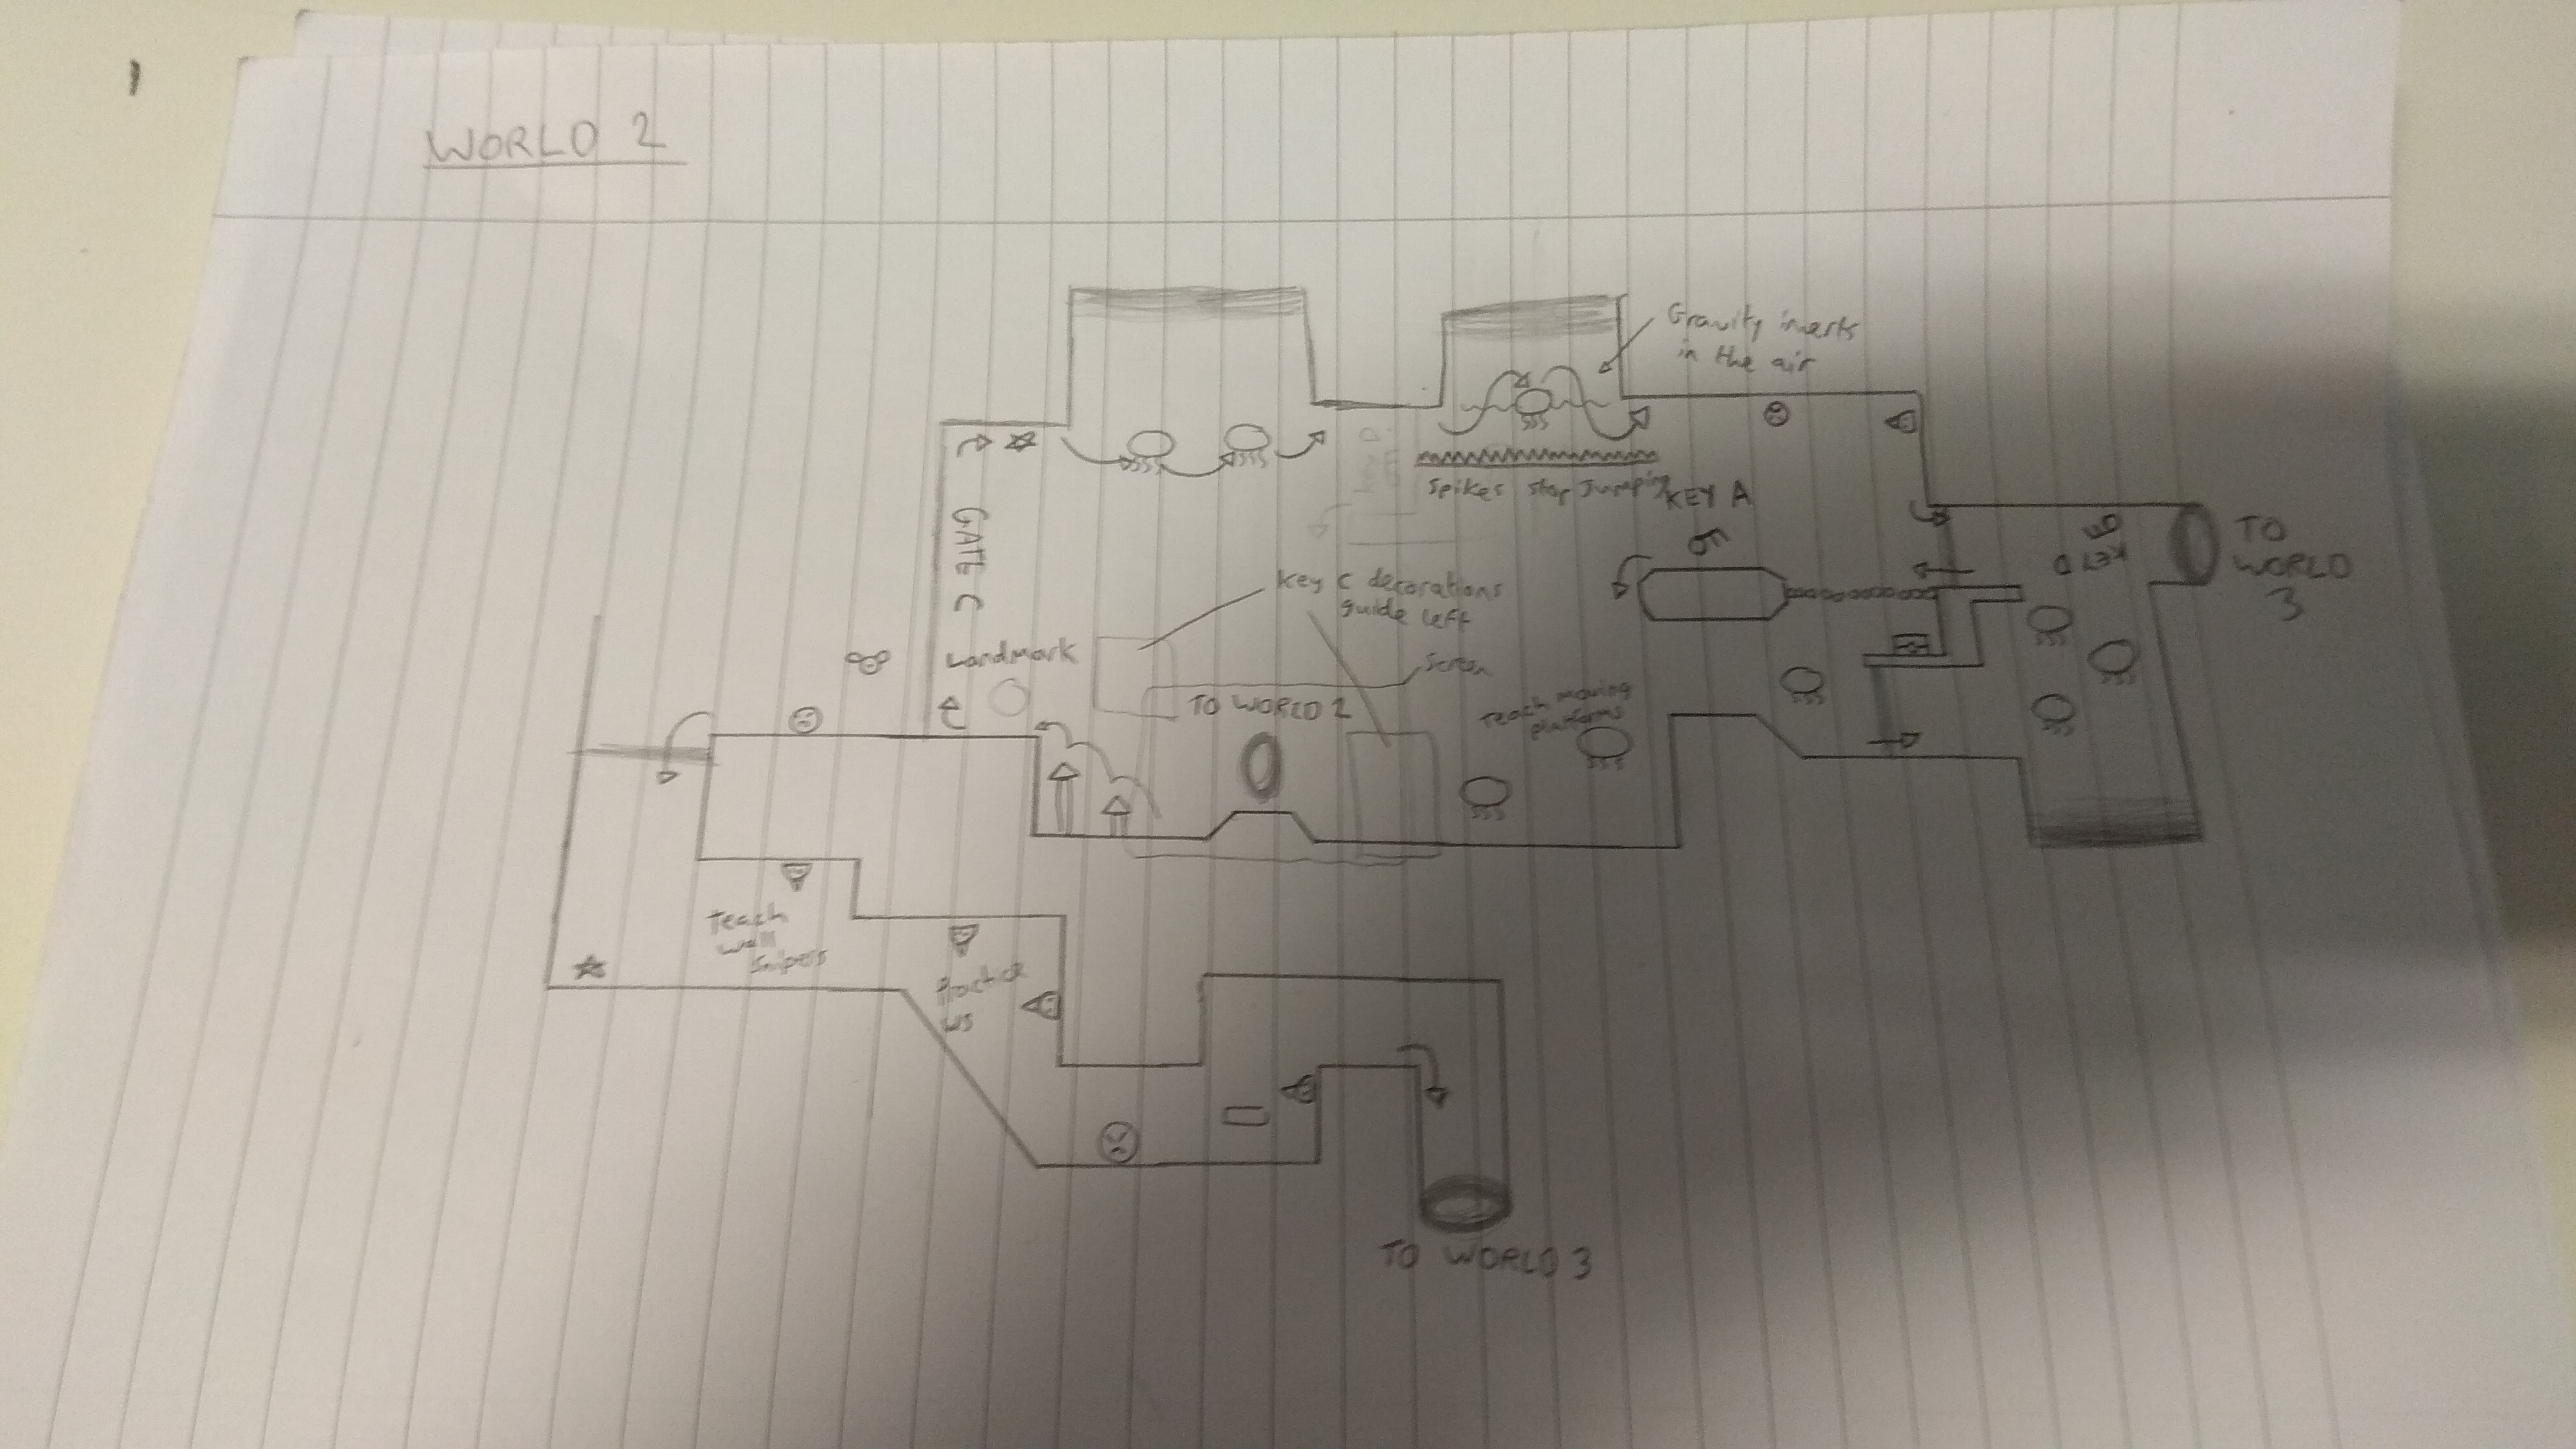 WORLD 2
Gravity inverts
in the air
Spikes stop jumping
KEY A
GATE C
KEY D
TO
WORLD
3
Key C decorations
guide left
Landmark
Screen
TO WORLD 2
Teach moving
platforms
Teach
wall
Snipers
Practice
WS
TO WORLD 3